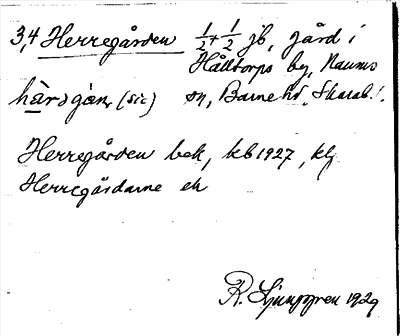 3,4 Herregården 1/2+1/2 jb, gård i
Hålltorps by, Naums
hærɔgan (sic) sn, Barne hd, Skarab. l.
Herregården bek, kb 1927, klg
Herregårdarne ek
R. Ljunggren 1929